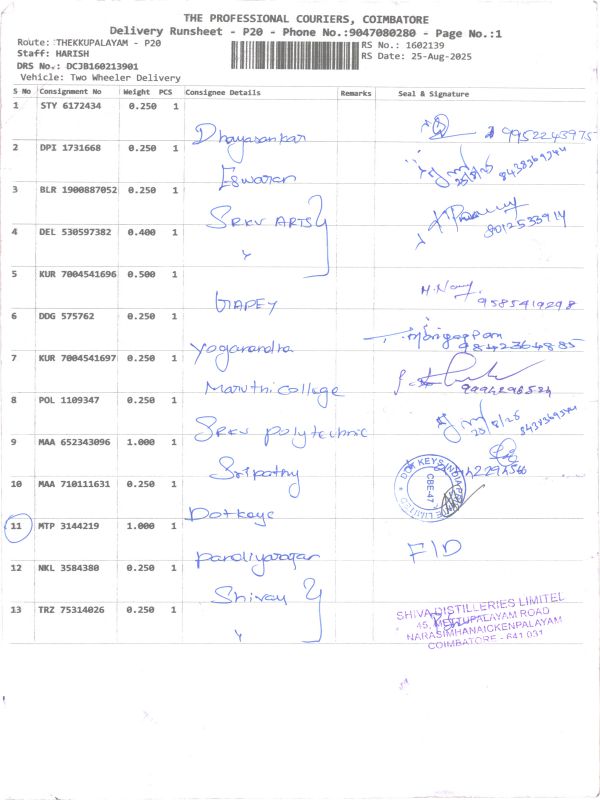 THE PROFESSIONAL COURIERS, COIMBATORE
Delivery Runsheet - P20 - Phone No.:9047080280 - Page No.:1
Route: THEKKUPALAYAM - P20
RS No.: 1602139
Staff: HARISH
RS Date: 25-Aug-2025
DRS No.: DCJB160213901
Vehicle: Two Wheeler Delivery
S No Consignment No Weight PCS Consignee Details Remarks Seal & Signature
1 STY 6172434 0.250 1
Dhayasankar 9952243975
2 DPI 1731668 0.250 1
Eswaran 25/8/25 8438369344
3 BLR 1900887052 0.250 1
SRKV ARTS 8012533914
4 DEL 530597382 0.400 1
5 KUR 7004541696 0.500 1
9585419298
6 DDG 575762 0.250 1
Yoganandha 9842364885
7 KUR 7004541697 0.250 1
Maruthi college
8 POL 1109347 0.250 1
SRKV polytechnic 25/8/25 8438369344
9 MAA 652343096 1.000 1
Sripathy
10 MAA 710111631 0.250 1
Dotkeys DOT KEYS INDIA CBE-47
11 MTP 3144219 1.000 1
Pandiyarajan F/D
12 NKL 3584380 0.250 1
13 TRZ 75314026 0.250 1
SHIVA DISTILLERIES LIMITEL
45, METTUPALAYAM ROAD
NARASIMHANAICKENPALAYAM
COIMBATORE - 641 031